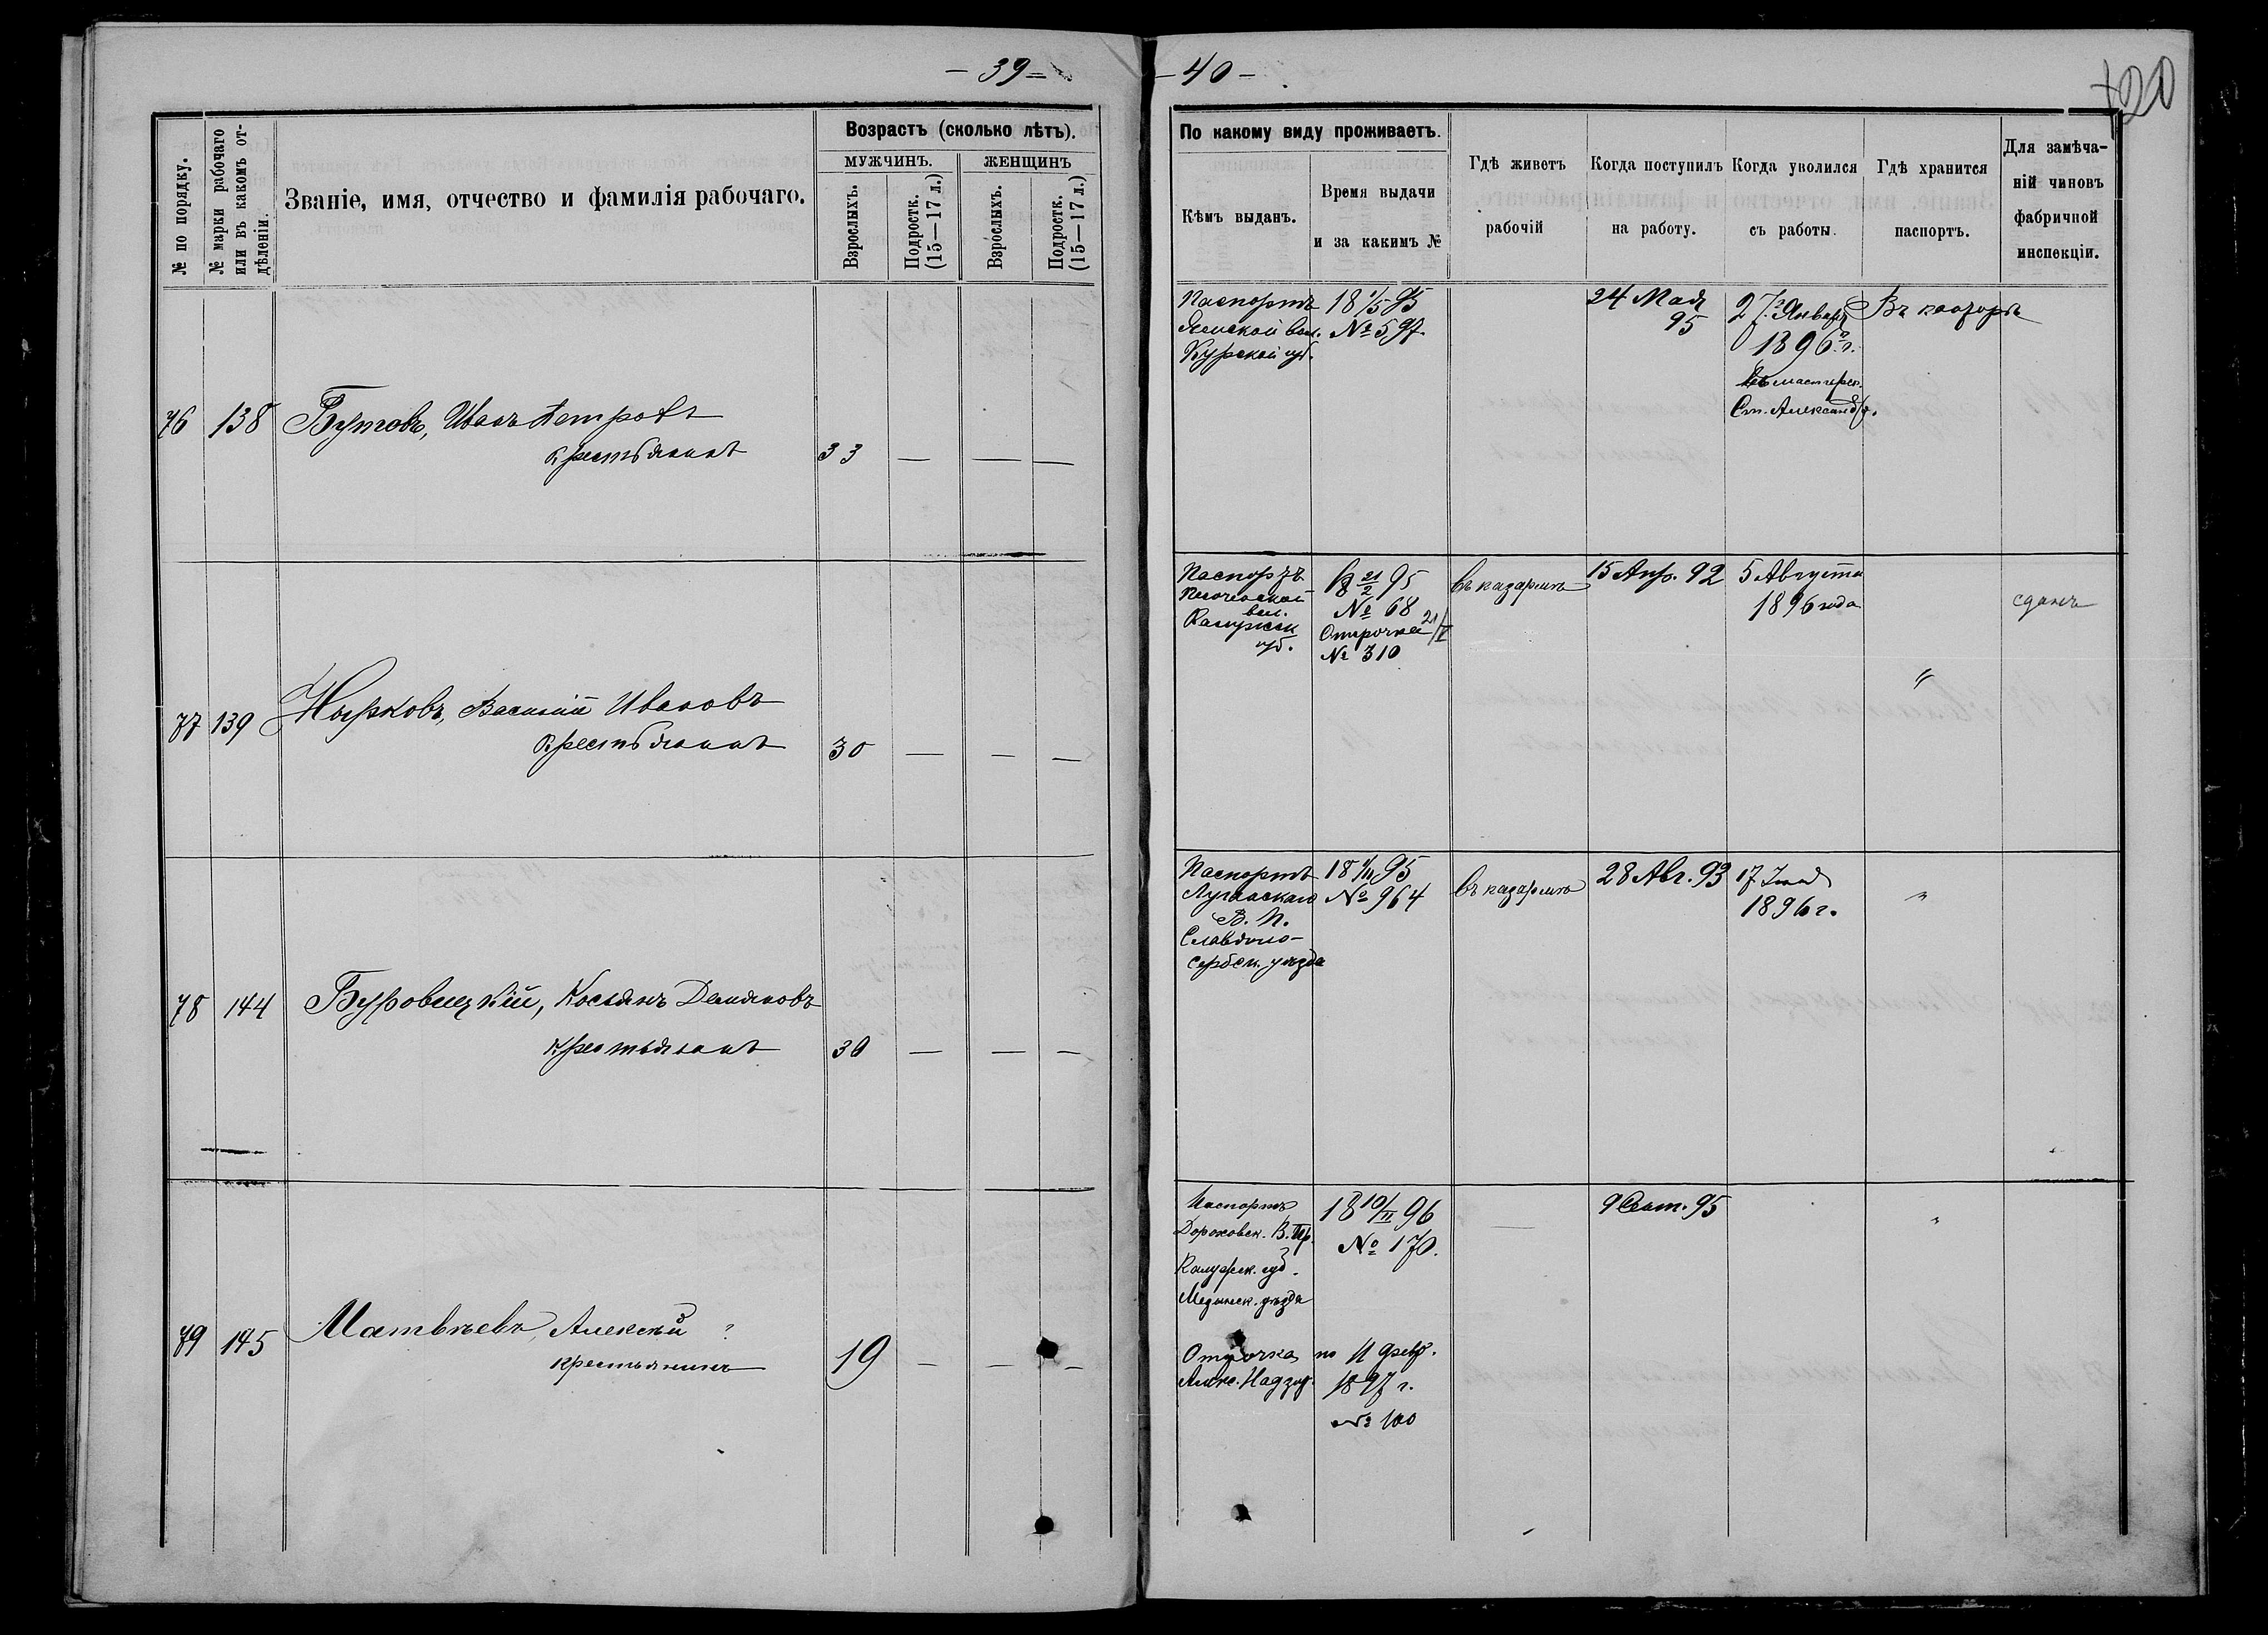 — 39 —
№ по порядку.
№ марки рабочаго
или въ какомъ от-
дѣленіи.
Званіе, имя, отчество и фамилія рабочаго.
Возрастъ (сколько лѣтъ).
МУЖЧИНЪ.
ЖЕНЩИНЪ
Взрослыхъ.
Подростк.
(15—17 л.)
Взрослыхъ.
Подростк.
(15—17 л.)
76 138 Бутовъ, Иванъ Петровъ
крестьянинъ 33 — — —
77 139 Нырковъ, Василій Ивановъ
крестьянинъ 30 — — —
78 144 Буровицкій, Косьянъ Демяновъ
крестьянинъ 30 — — —
79 145 Матвѣевъ, Алексѣй ?
крестьянинъ 19 — — —
— 40 —
120
По какому виду проживаетъ.
Кѣмъ выданъ.
Время выдачи
и за какимъ №
Гдѣ живетъ
рабочій
Когда поступилъ
на работу.
Когда уволился
съ работы.
Гдѣ хранится
паспортъ.
Для замѣча-
ній чиновъ
фабричной
инспекціи.
Паспортъ
вол.
Курской губ.
18 1/5 95
№ 597
24 Мая
95
27 Января
1896 г.
Ст. Александр.
Въ конторѣ
Паспортъ
вол.
Калужск
губ.
18 21/2 95
№ 68
Отсрочка 21/V
№ 310
въ казармѣ
15 Апр. 92
5 Августа
1896 года
"
сданъ
Паспортъ
Луганскаго
В. П.
Славяно-
сербск. уѣзда
95
№ 964
въ казармѣ
28 Авг. 93
17
1896 г.
"
Паспортъ
Дороховск. В. Пр.
Калужск. губ.
Медынск. уѣзда
18 10/II 96
№ 170.
—
9 Сент. 95
"
Отсрочка
Надзир.
по 11 февр.
1897 г.
№ 100